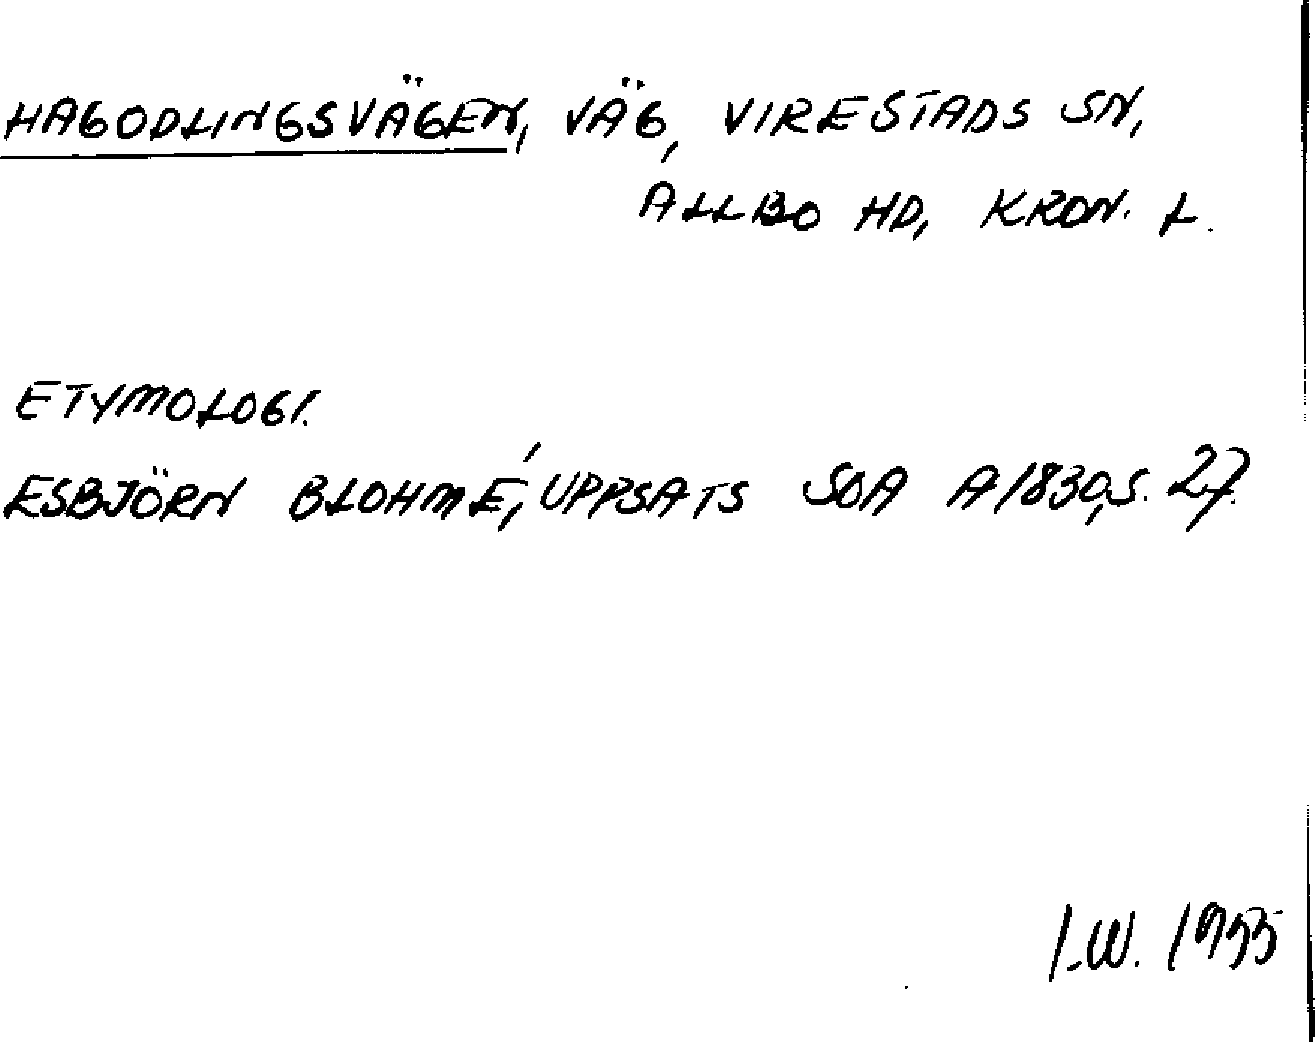 HAGODLINGSVÄGEN, VÄG, VIRESTADS SN,
ALLBO HD, KRON. L.
ETYMOLOGI.
ESBJÖRN BLOHMÉ, UPPSATS SOA A1830, S. 27.
I.W. 1955